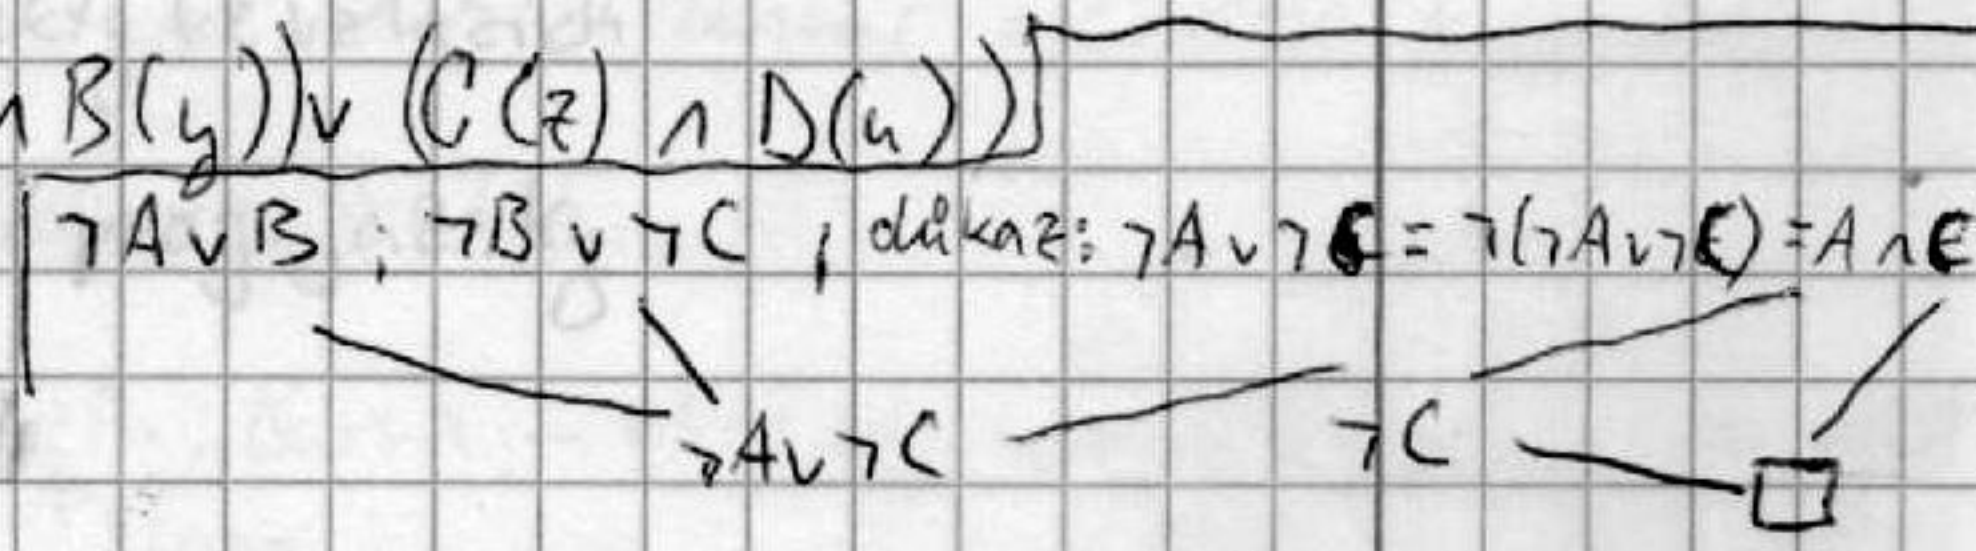 ∧ B(y)) ∨ (C(z) ∧ D(u))
¬A ∨ B ; ¬B ∨ ¬C , důkaz: ¬A ∨ ¬C = ¬(¬A ∨ ¬C) = A ∧ C
¬A ∨ ¬C ¬C □